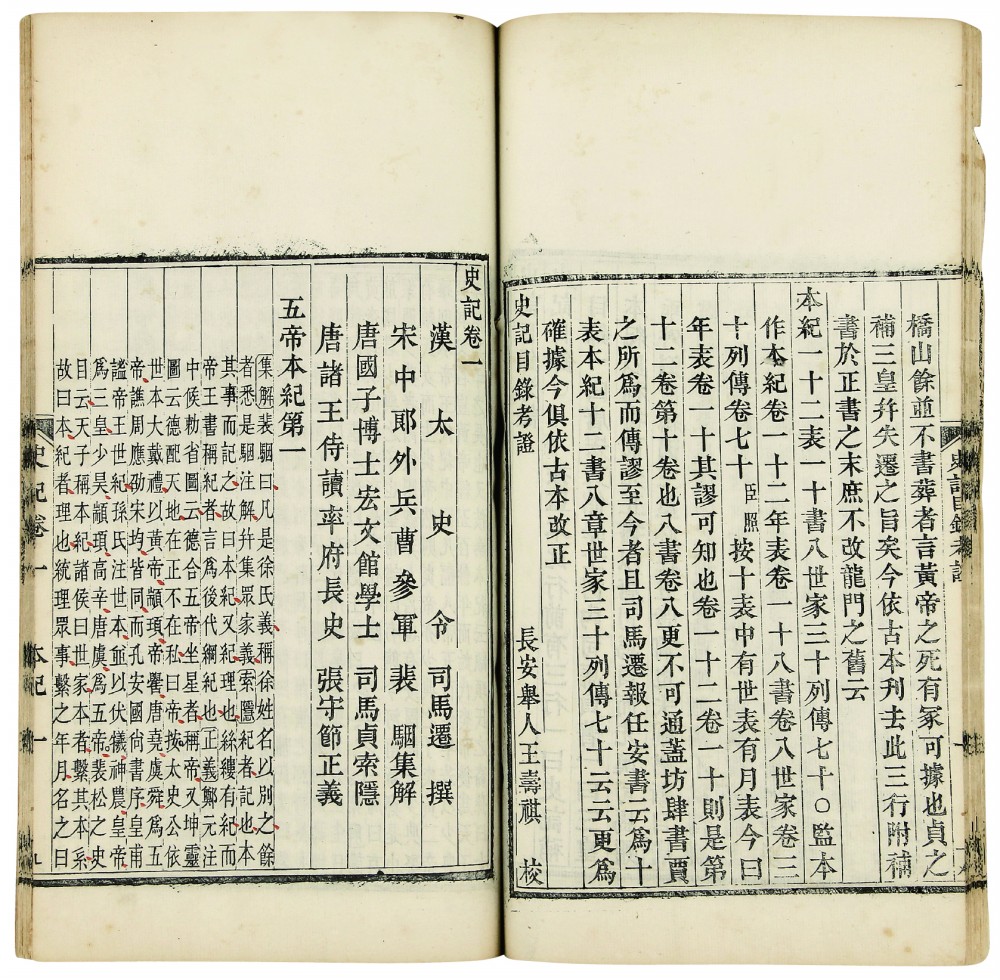 橋山餘並不書葬者言黃帝之死有冢可據也貞之
補三皇幷失遷之旨矣今依古本刊去此三行附補
書於正書之末庶不改龍門之舊云
本紀一十二表一十書八世家三十列傳七十○監本
作本紀卷一十二年表卷一十八書卷八世家卷三
十列傳卷七十臣照按十表中有世表有月表今曰
年表卷一十其謬可知也卷一十二卷一十則是第
十二卷第十卷也八書卷八更不可通蓋坊肆書賈
之所爲而傳謬至今者且司馬遷報任安書云爲十
表本紀十二書八章世家三十列傳七十云云更爲
確據今俱依古本改正
史記目錄考證 長安舉人王壽祺 校
史記目錄考證
史記卷一
漢太史令司馬遷撰
宋中郎外兵曹參軍裴駰集解
唐國子博士宏文館學士司馬貞索隱
唐諸王侍讀率府長史張守節正義
五帝本紀第一
集解裴駰曰凡是徐氏義稱徐姓名以別之餘
者悉是駰注解幷集眾家義索隱紀者記也本
其事而記之故曰本紀又紀理也絲縷有紀而
帝王書稱紀者言爲後代綱紀也正義鄭元注
中候勑省圖云德合五帝坐星者稱帝又坤靈
圖云德配天地在正不在私曰帝按太史公依
世本大戴禮以黃帝顓頊帝嚳唐堯虞舜爲五
帝譙周應劭宋均皆同而孔安國尚書序皇甫
謐帝王世紀孫氏注世本並以伏犧神農皇帝
爲三皇少昊顓頊高辛唐虞爲五帝裴松之史
目云天子稱本紀諸侯曰世家本者繫其本系
故曰本紀者理也統理眾事繫之年月名之曰
史記卷一 本紀 一